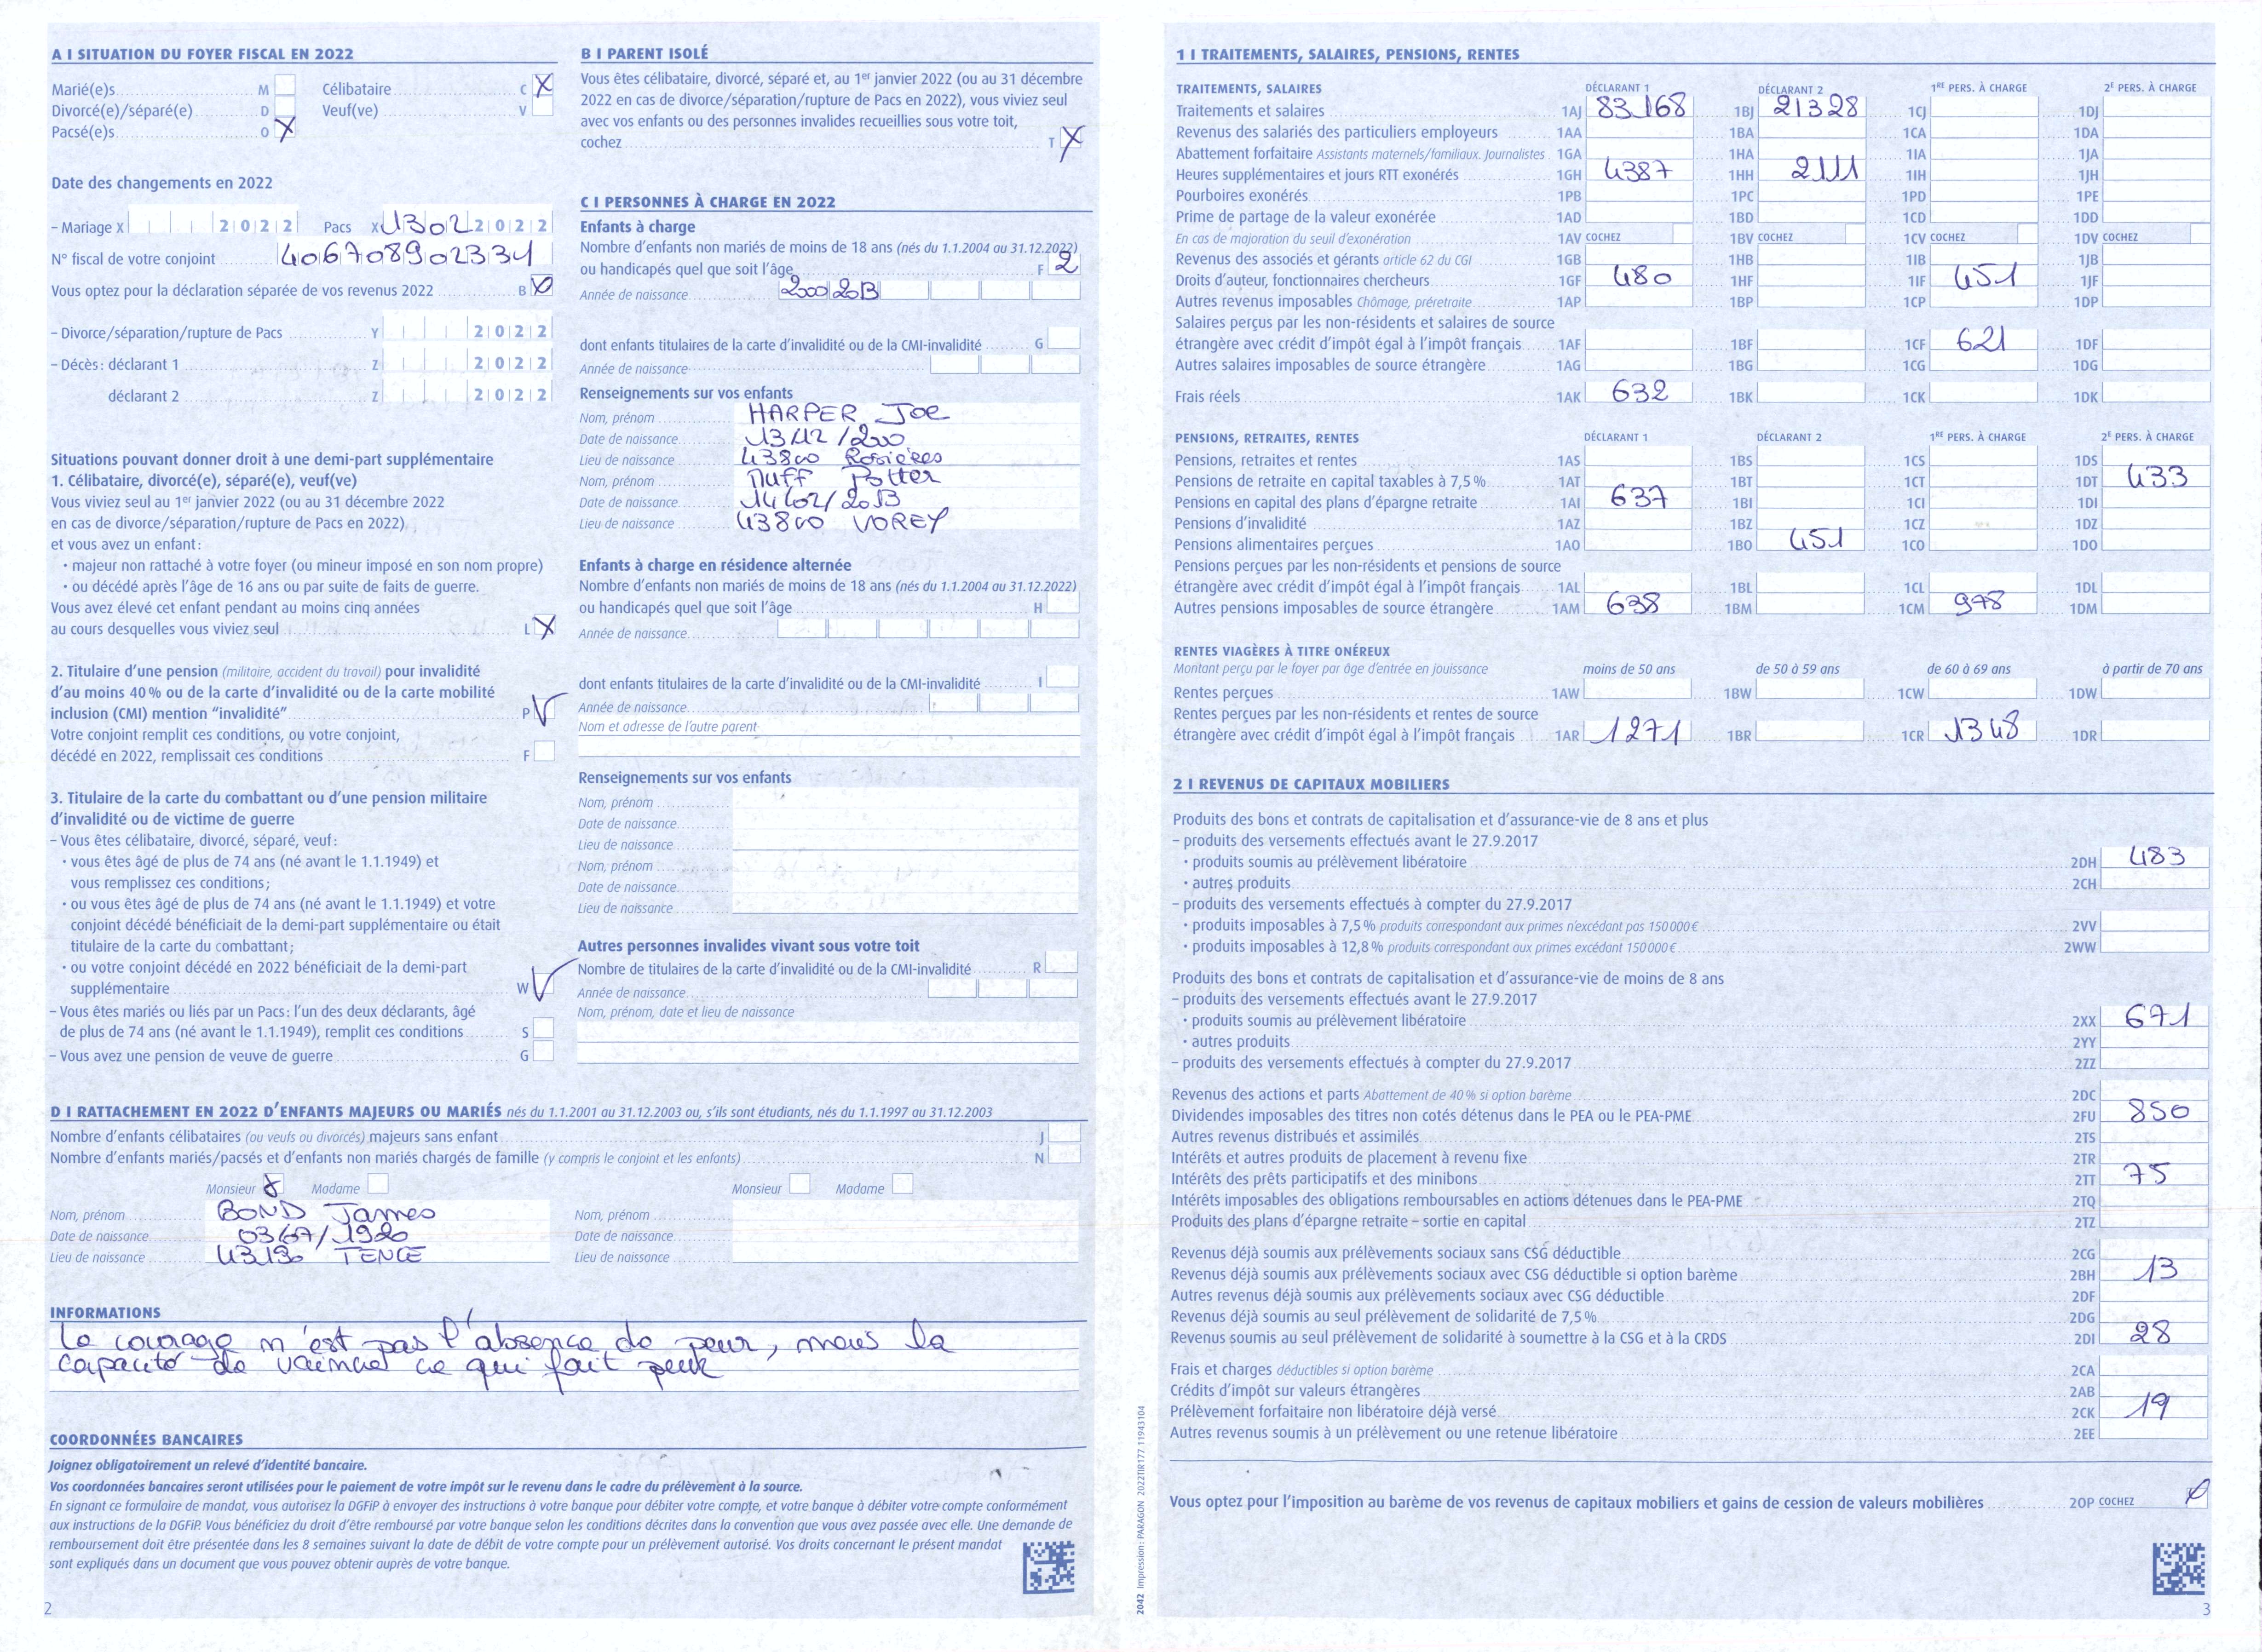 A I SITUATION DU FOYER FISCAL EN 2022
Marié(e)s M Célibataire C X
Divorcé(e)/séparé(e) D Veuf(ve) V
Pacsé(e)s O X
Date des changements en 2022
– Mariage X 2022 Pacs X 13022022
N° fiscal de votre conjoint 406708902334
Vous optez pour la déclaration séparée de vos revenus 2022 B X
– Divorce/séparation/rupture de Pacs Y 2022
– Décès: déclarant 1 Z 2022
déclarant 2 Z 2022
Situations pouvant donner droit à une demi-part supplémentaire
1. Célibataire, divorcé(e), séparé(e), veuf(ve)
Vous viviez seul au 1er janvier 2022 (ou au 31 décembre 2022
en cas de divorce/séparation/rupture de Pacs en 2022)
et vous avez un enfant:
• majeur non rattaché à votre foyer (ou mineur imposé en son nom propre)
• ou décédé après l'âge de 16 ans ou par suite de faits de guerre.
Vous avez élevé cet enfant pendant au moins cinq années
au cours desquelles vous viviez seul L X
2. Titulaire d'une pension (militaire, accident du travail) pour invalidité
d'au moins 40 % ou de la carte d'invalidité ou de la carte mobilité
inclusion (CMI) mention “invalidité” P V
Votre conjoint remplit ces conditions, ou votre conjoint,
décédé en 2022, remplissait ces conditions F
3. Titulaire de la carte du combattant ou d'une pension militaire
d'invalidité ou de victime de guerre
– Vous êtes célibataire, divorcé, séparé, veuf:
• vous êtes âgé de plus de 74 ans (né avant le 1.1.1949) et
vous remplissez ces conditions;
• ou vous êtes âgé de plus de 74 ans (né avant le 1.1.1949) et votre
conjoint décédé bénéficiait de la demi-part supplémentaire ou était
titulaire de la carte du combattant;
• ou votre conjoint décédé en 2022 bénéficiait de la demi-part
supplémentaire W V
– Vous êtes mariés ou liés par un Pacs: l'un des deux déclarants, âgé
de plus de 74 ans (né avant le 1.1.1949), remplit ces conditions S
– Vous avez une pension de veuve de guerre G
B I PARENT ISOLÉ
Vous êtes célibataire, divorcé, séparé et, au 1er janvier 2022 (ou au 31 décembre
2022 en cas de divorce/séparation/rupture de Pacs en 2022), vous viviez seul
avec vos enfants ou des personnes invalides recueillies sous votre toit,
cochez T X
C I PERSONNES À CHARGE EN 2022
Enfants à charge
Nombre d'enfants non mariés de moins de 18 ans (nés du 1.1.2004 au 31.12.2022)
ou handicapés quel que soit l'âge F 2
Année de naissance 2000 2013
dont enfants titulaires de la carte d'invalidité ou de la CMI-invalidité G
Année de naissance
Renseignements sur vos enfants
Nom, prénom HARPER Joe
Date de naissance 13/12/200
Lieu de naissance 43800 Rosières
Nom, prénom Muff Potter
Date de naissance 14/02/2013
Lieu de naissance 43800 VOREY
Enfants à charge en résidence alternée
Nombre d'enfants non mariés de moins de 18 ans (nés du 1.1.2004 au 31.12.2022)
ou handicapés quel que soit l'âge H
Année de naissance
dont enfants titulaires de la carte d'invalidité ou de la CMI-invalidité I
Année de naissance
Nom et adresse de l'autre parent
Renseignements sur vos enfants
Nom, prénom
Date de naissance
Lieu de naissance
Nom, prénom
Date de naissance
Lieu de naissance
Autres personnes invalides vivant sous votre toit
Nombre de titulaires de la carte d'invalidité ou de la CMI-invalidité R
Année de naissance
Nom, prénom, date et lieu de naissance
D I RATTACHEMENT EN 2022 D'ENFANTS MAJEURS OU MARIÉS nés du 1.1.2001 au 31.12.2003 ou, s'ils sont étudiants, nés du 1.1.1997 au 31.12.2003
Nombre d'enfants célibataires (ou veufs ou divorcés) majeurs sans enfant J
Nombre d'enfants mariés/pacsés et d'enfants non mariés chargés de famille (y compris le conjoint et les enfants) N
Monsieur X Madame Monsieur Madame
Nom, prénom BOND James Nom, prénom
Date de naissance 03/07/1920 Date de naissance
Lieu de naissance 43190 TENCE Lieu de naissance
INFORMATIONS
Le courage n'est pas l'absence de peur, mais la
capacité de vaincre ce qui fait peur
COORDONNÉES BANCAIRES
Joignez obligatoirement un relevé d'identité bancaire.
Vos coordonnées bancaires seront utilisées pour le paiement de votre impôt sur le revenu dans le cadre du prélèvement à la source.
En signant ce formulaire de mandat, vous autorisez la DGFiP à envoyer des instructions à votre banque pour débiter votre compte, et votre banque à débiter votre compte conformément
aux instructions de la DGFiP. Vous bénéficiez du droit d'être remboursé par votre banque selon les conditions décrites dans la convention que vous avez passée avec elle. Une demande de
remboursement doit être présentée dans les 8 semaines suivant la date de débit de votre compte pour un prélèvement autorisé. Vos droits concernant le présent mandat
sont expliqués dans un document que vous pouvez obtenir auprès de votre banque.
2
2042 Impression: PARAGON 2022TIR177 11943104
1 I TRAITEMENTS, SALAIRES, PENSIONS, RENTES
TRAITEMENTS, SALAIRES DÉCLARANT 1 DÉCLARANT 2 1RE PERS. À CHARGE 2E PERS. À CHARGE
Traitements et salaires 1AJ 83168 1BJ 21328 1CJ 1DJ
Revenus des salariés des particuliers employeurs 1AA 1BA 1CA 1DA
Abattement forfaitaire Assistants maternels/familiaux. Journalistes 1GA 1HA 1IA 1JA
Heures supplémentaires et jours RTT exonérés 1GH 4387 1HH 2111 1IH 1JH
Pourboires exonérés 1PB 1PC 1PD 1PE
Prime de partage de la valeur exonérée 1AD 1BD 1CD 1DD
En cas de majoration du seuil d'exonération 1AV COCHEZ 1BV COCHEZ 1CV COCHEZ 1DV COCHEZ
Revenus des associés et gérants article 62 du CGI 1GB 1HB 1IB 1JB
Droits d'auteur, fonctionnaires chercheurs 1GF 480 1HF 1IF 451 1JF
Autres revenus imposables Chômage, préretraite 1AP 1BP 1CP 1DP
Salaires perçus par les non-résidents et salaires de source
étrangère avec crédit d'impôt égal à l'impôt français 1AF 1BF 1CF 621 1DF
Autres salaires imposables de source étrangère 1AG 1BG 1CG 1DG
Frais réels 1AK 632 1BK 1CK 1DK
PENSIONS, RETRAITES, RENTES DÉCLARANT 1 DÉCLARANT 2 1RE PERS. À CHARGE 2E PERS. À CHARGE
Pensions, retraites et rentes 1AS 1BS 1CS 1DS
Pensions de retraite en capital taxables à 7,5 % 1AT 1BT 1CT 1DT 433
Pensions en capital des plans d'épargne retraite 1AI 637 1BI 1CI 1DI
Pensions d'invalidité 1AZ 1BZ 1CZ 1DZ
Pensions alimentaires perçues 1AO 1BO 451 1CO 1DO
Pensions perçues par les non-résidents et pensions de source
étrangère avec crédit d'impôt égal à l'impôt français 1AL 1BL 1CL 1DL
Autres pensions imposables de source étrangère 1AM 638 1BM 1CM 978 1DM
RENTES VIAGÈRES À TITRE ONÉREUX
Montant perçu par le foyer par âge d'entrée en jouissance moins de 50 ans de 50 à 59 ans de 60 à 69 ans à partir de 70 ans
Rentes perçues 1AW 1BW 1CW 1DW
Rentes perçues par les non-résidents et rentes de source
étrangère avec crédit d'impôt égal à l'impôt français 1AR 1271 1BR 1CR 1348 1DR
2 I REVENUS DE CAPITAUX MOBILIERS
Produits des bons et contrats de capitalisation et d'assurance-vie de 8 ans et plus
– produits des versements effectués avant le 27.9.2017
• produits soumis au prélèvement libératoire 2DH 483
• autres produits 2CH
– produits des versements effectués à compter du 27.9.2017
• produits imposables à 7,5 % produits correspondant aux primes n'excédant pas 150 000 € 2VV
• produits imposables à 12,8 % produits correspondant aux primes excédant 150 000 € 2WW
Produits des bons et contrats de capitalisation et d'assurance-vie de moins de 8 ans
– produits des versements effectués avant le 27.9.2017
• produits soumis au prélèvement libératoire 2XX 671
• autres produits 2YY
– produits des versements effectués à compter du 27.9.2017 2ZZ
Revenus des actions et parts Abattement de 40 % si option barème 2DC
Dividendes imposables des titres non cotés détenus dans le PEA ou le PEA-PME 2FU 850
Autres revenus distribués et assimilés 2TS
Intérêts et autres produits de placement à revenu fixe 2TR
Intérêts des prêts participatifs et des minibons 2TT 75
Intérêts imposables des obligations remboursables en actions détenues dans le PEA-PME 2TQ
Produits des plans d'épargne retraite – sortie en capital 2TZ
Revenus déjà soumis aux prélèvements sociaux sans CSG déductible 2CG
Revenus déjà soumis aux prélèvements sociaux avec CSG déductible si option barème 2BH 13
Autres revenus déjà soumis aux prélèvements sociaux avec CSG déductible 2DF
Revenus déjà soumis au seul prélèvement de solidarité de 7,5 % 2DG
Revenus soumis au seul prélèvement de solidarité à soumettre à la CSG et à la CRDS 2DI 28
Frais et charges déductibles si option barème 2CA
Crédits d'impôt sur valeurs étrangères 2AB
Prélèvement forfaitaire non libératoire déjà versé 2CK 19
Autres revenus soumis à un prélèvement ou une retenue libératoire 2EE
Vous optez pour l'imposition au barème de vos revenus de capitaux mobiliers et gains de cession de valeurs mobilières 2OP COCHEZ X
3